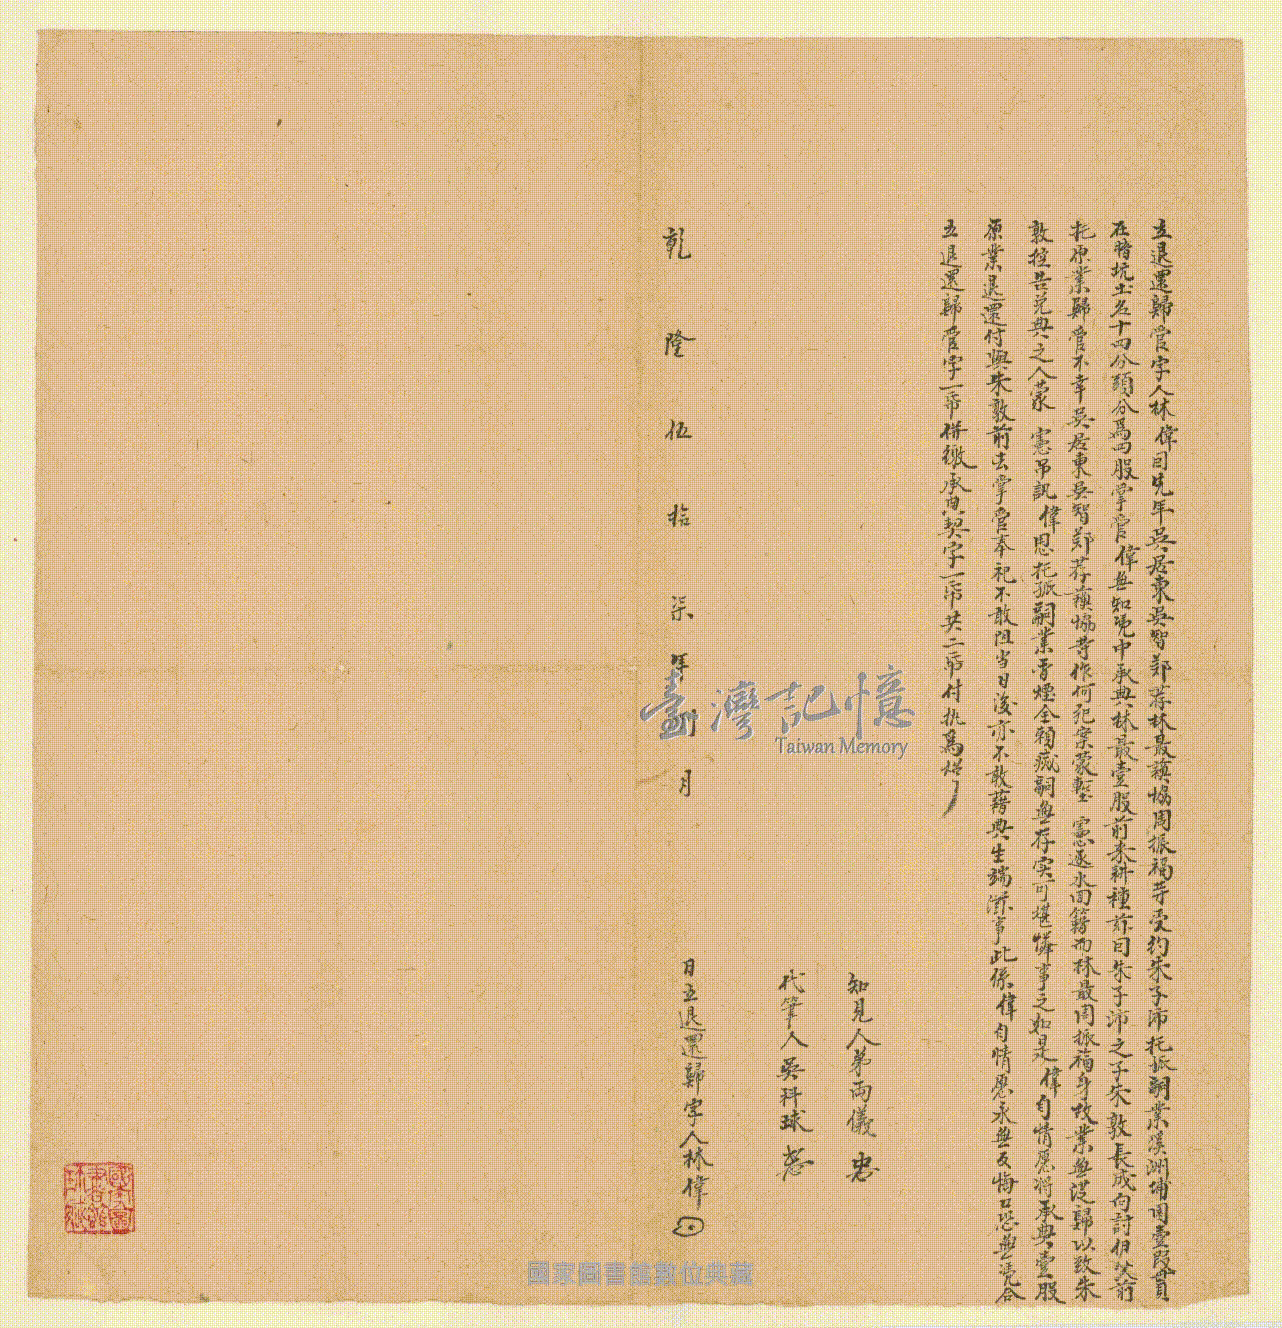 立退還歸管字人林偉因先年吳居東吳智鄭荐林最蘋協周振福等受約朱子沛托孤嗣業溪洲埔園壹段貫
在暗坑土名十四分頭分為四股掌管偉無知凴中承典林最壹股前來耕種茲因朱子沛之子朱敦長成向討伊父前
托原業歸管不幸吳居東吳智鄭荐蘋協等作何犯案蒙 憲逐水回籍而林最周振福身故業無從歸以致朱
敦控告兌典之人蒙 憲吊訊偉思托孤嗣業香煙全賴滅嗣無存实可堪憐事之如是偉自情愿將承典壹股
原業退還付與朱敦前去掌管奉祀不敢阻当日後亦不敢藉典生端滋事此係偉自情愿永無反悔口恐無凴合
立退還歸管字一帋併繳承典契字一帋共二帋付执為炤
知見人弟兩儀
代筆人吳科球
乾隆伍拾柒年 月 日立退還歸字人林偉
臺灣記憶
Taiwan Memory
國家圖書館數位典藏